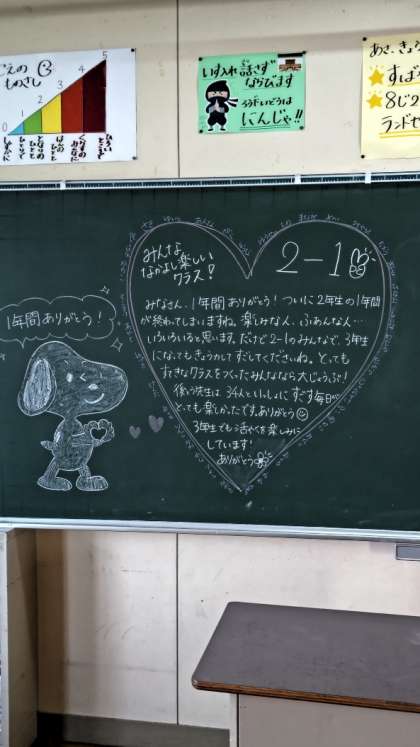 こえの
ものさし
0 1 2 3 4 5
となりの
ひとと
はんの
ひとと
くみの
みんなに
ひろい
ところで
いす入れ 話さず
ならびます
ろうかいどうは
にんじゃ!!
あさ、きょ
すば
8じ2
ランドセ
みんな
なかよし楽しい
クラス!
2-1
みなさん、1年間ありがとう!ついに2年生の1年間
が終わってしまいますね。楽しみな人、ふあんな人…
いろいろいると思います。だけど2-1のみんなで、3年生
になってもきょうりょくしてすごしてくださいね。とっても
すてきなクラスをつくったみんななら大じょうぶ!
先生は34人といっしょにすごす毎日が
とっても楽しかったです。ありがとう
3年生でも活やくを楽しみに
しています!
ありがとう
1年間ありがとう!